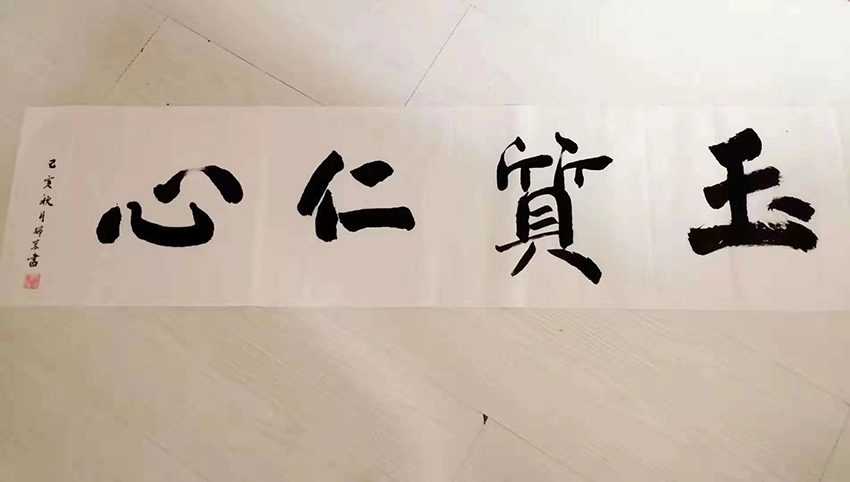 玉質仁心
己亥秋月
書